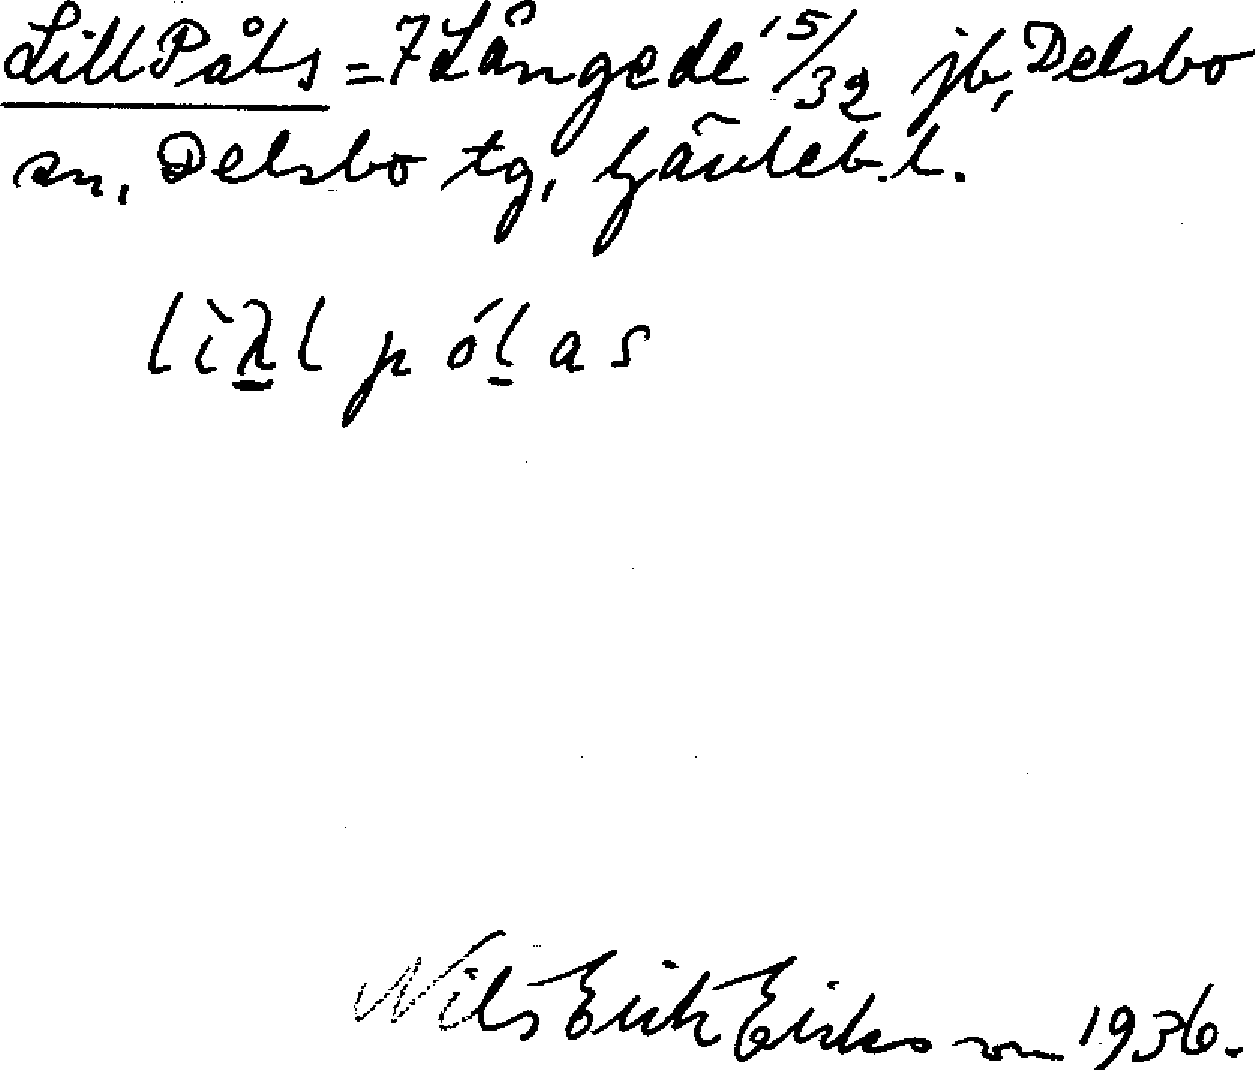 LillPåls = 7 Långede 15/32 jb, Delsbo
sn, Delsbo tg, Gävleb.l.
Nils Erik Eriksson 1936.